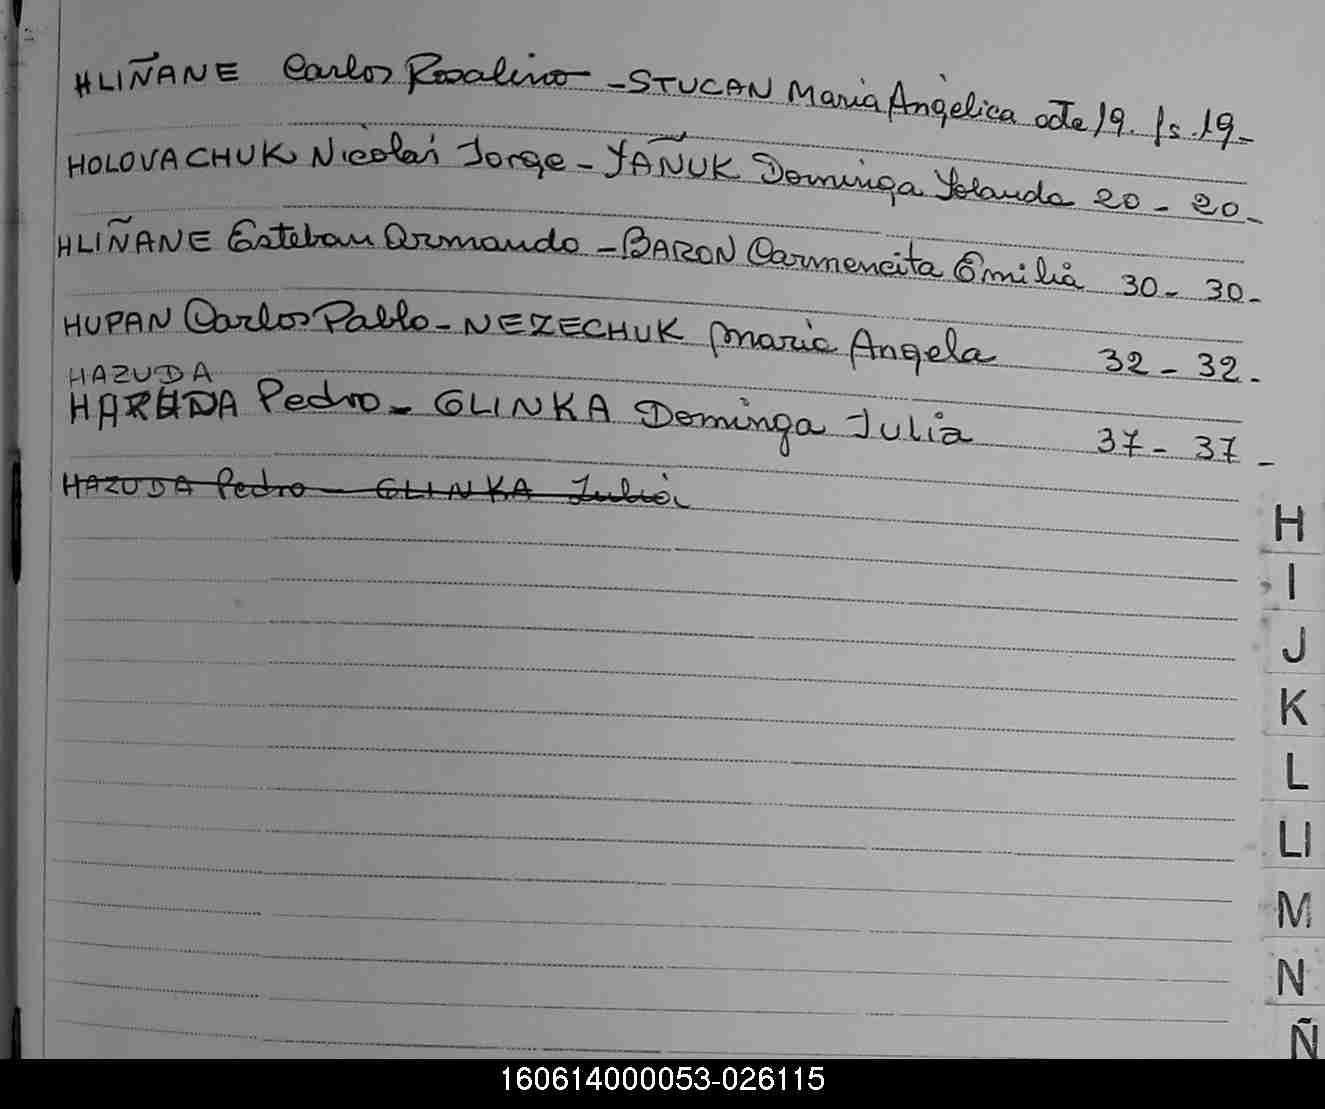 HLIÑANE Carlos Rosalino - STUCAN Maria Angélica acta 19. fs. 19-
HOLOVACHUK Nicolás Jorge - YAÑUK Dominga Yolanda 20 - 20-
HLIÑANE Esteban Armando - BARON Carmencita Emilia 30 - 30-
HUPAN Carlos Pablo - NEZECHUK Maria Angela 32 - 32.
HAZUDA
Pedro - GLINKA Dominga Julia 37 - 37 -
HAZUDA Pedro - GLINKA Julia
H
I
J
K
L
Ll
M
N
Ñ
160614000053-026115